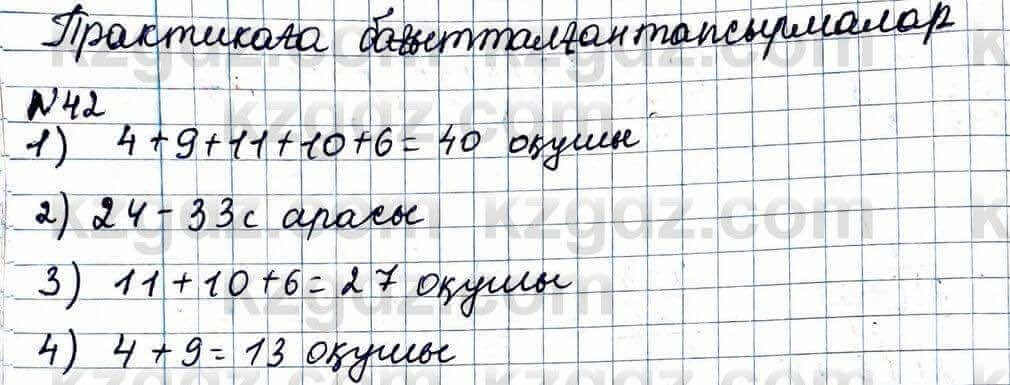 Практикаға бағытталған тапсырмалар
№42
1) 4+9+11+10+6=40 оқушы
2) 24-33с арасы
3) 11+10+6=27 оқушы
4) 4+9=13 оқушы